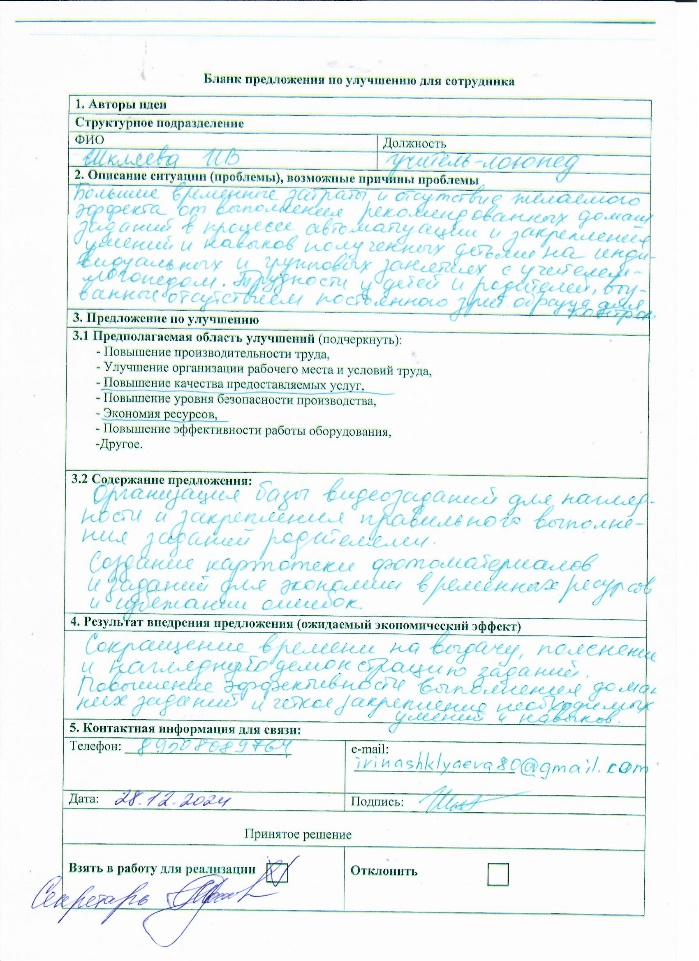 Бланк предложения по улучшению для сотрудника
1. Авторы идеи
Структурное подразделение
ФИО
Должность
Шкляева ИВ
учитель-логопед
2. Описание ситуации (проблемы), возможные причины проблемы
Большие временные затраты и отсутствие желаемого
эффекта от выполнения рекомендованных домаш
заданий в процессе автоматизации и закрепления
умений и навыков полученных детьми на инди-
видуальных и групповых занятиях с учителем-
логопедом. Трудности у детей и родителей, выз-
ванные отсутствием постоянного зрит образца для
контрол.
3. Предложение по улучшению
3.1 Предполагаемая область улучшений (подчеркнуть):
- Повышение производительности труда,
- Улучшение организации рабочего места и условий труда,
- Повышение качества предоставляемых услуг,
- Повышение уровня безопасности производства,
- Экономия ресурсов,
- Повышение эффективности работы оборудования,
-Другое.
3.2 Содержание предложения:
Организация базы видеозаданий для нагляд-
ности и закрепления правильного выполне-
ния заданий родителями.
Создание картотеки фотоматериалов
и заданий для экономии временных ресурсов
и избежании ошибок.
4. Результат внедрения предложения (ожидаемый экономический эффект)
Сокращение времени на выдачу, пояснение
и наглядную демонстрацию заданий.
Повышение эффективности выполнения домаш
них заданий и четкое закрепление необходимых
умений и навыков.
5. Контактная информация для связи:
Телефон: 89508089764
e-mail:
irinashklyaeva80@gmail.com
Дата: 28.12.2024
Подпись:
Принятое решение
Взять в работу для реализации
Отклонить
Секретарь